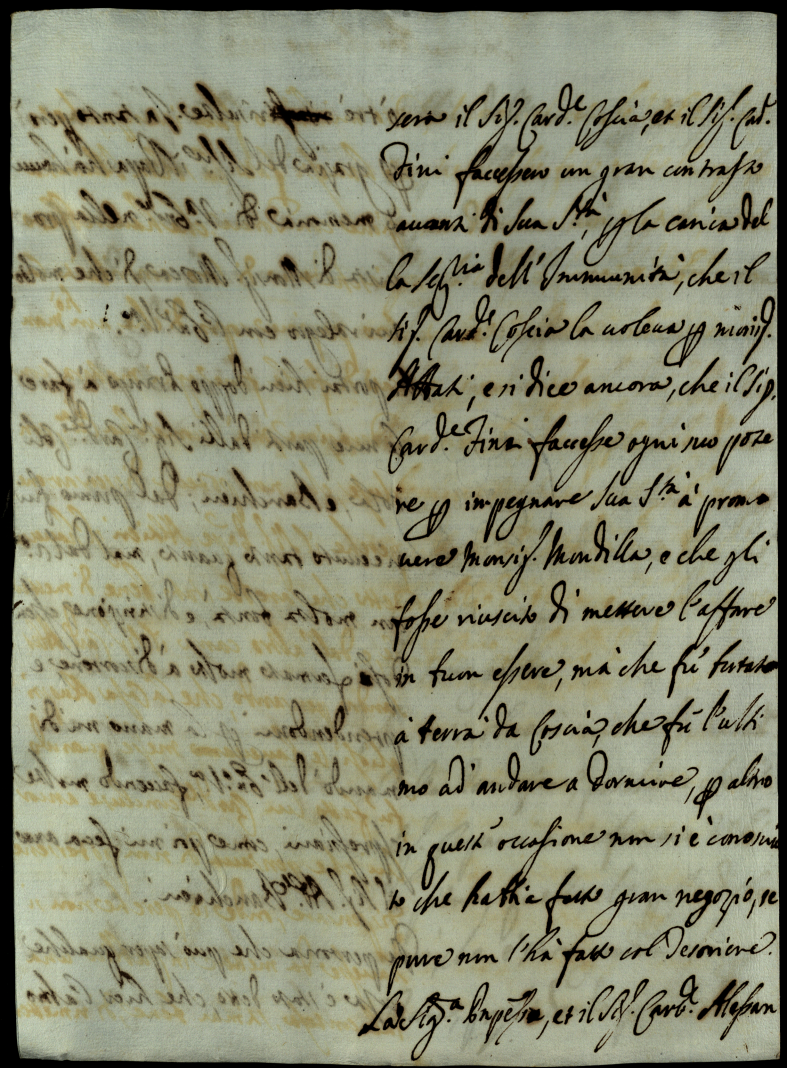 sera il Sig.r Card.e Coscia, et il Sig.r Card.
Fini facessero un gran contrasto
avanti di Sua S.tà, p la carica del
la Seg.ria dell'Immunità, che il
Sig.r Card.e Coscia la voleva p monsig.r
Abbati, e si dice ancora, che il Sig.r
Card.e Fini facesse ogni suo pote
re p impegnare Sua S.tà à promo
vere Monsig.r Mondilla, e che gli
fosse riuscito di mettere l'affare
in buon essere, mà che fù buttato
à terra da Coscia, che fù l'ulti
mo ad andare a dormire, p altro
in quest'occasione non si è conosciu
to che habbia fatto gran negozio, se
pure non l'hà fatto col
La Sig.a et il Sig.r Card.e Alessan